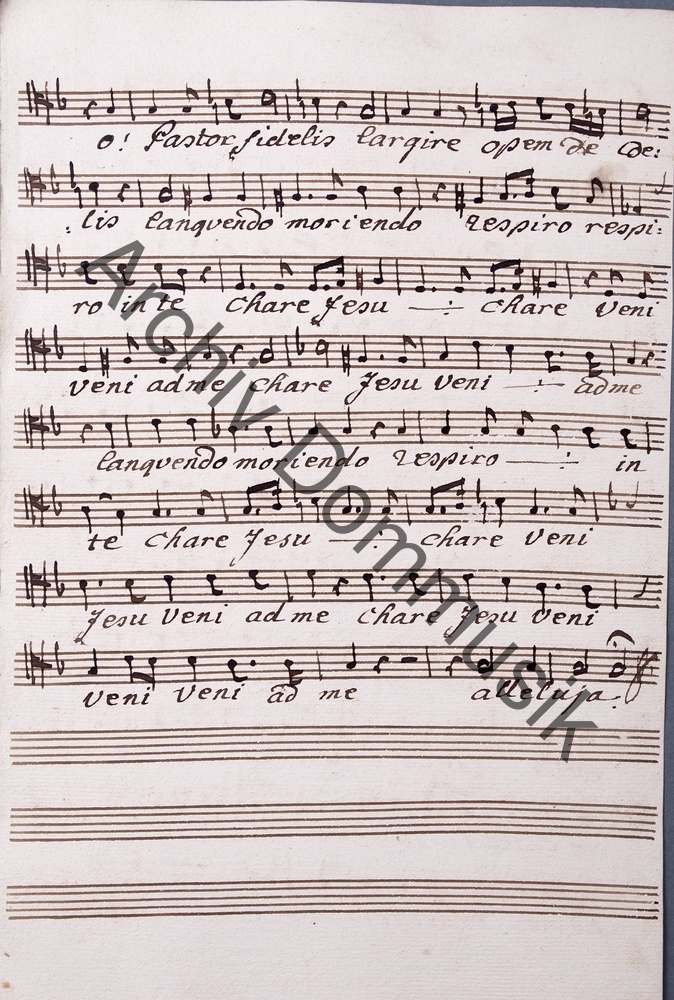 o! Pastor fidelis largire opem de Cœ:
:lis languendo moriendo respiro respi:
ro in te Chare Jesu —:— Chare Veni
veni ad me Chare Jesu Veni —:— ad me
languendo moriendo respiro —:— in
te Chare Jesu —:— Chare Veni
Jesu Veni ad me Chare Jesu Veni
veni veni ad me alleluja.
Archiv Dommusik